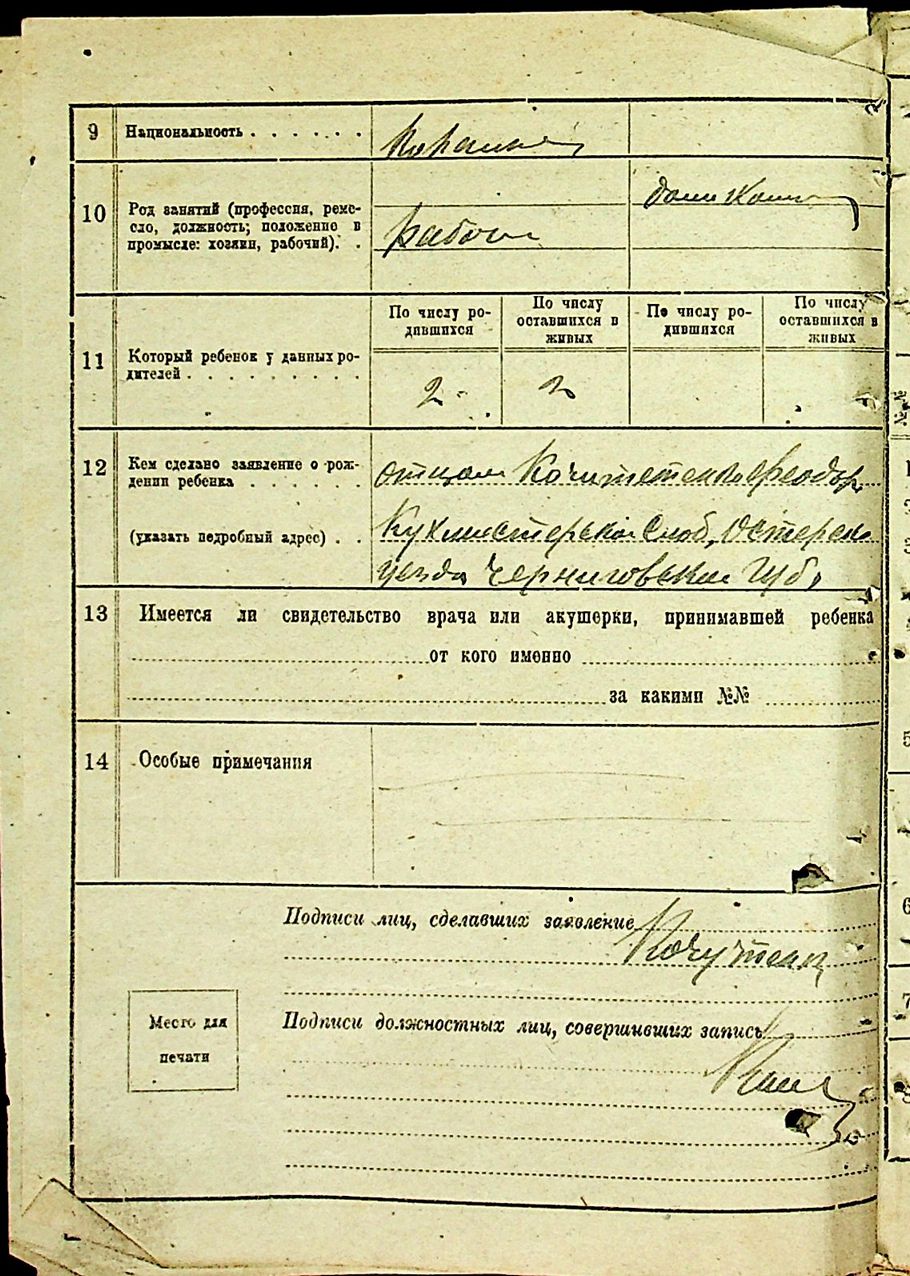 9 Национальность . . . . . .
10 Род занятий (профессия, реме-
сло, должность; положение в
промысле: хозяин, рабочий). .
рабоч
11 Который ребенок у данных ро-
дителей . . . . . . . . .
По числу ро-
дившихся
По числу
оставшихся в
живых
По числу ро-
дившихся
По числу
оставшихся в
живых
2 2
12 Кем сделано заявление о рож-
дении ребенка . . . . . .
отцом Феодор
(указать подробный адрес) . .
Кухмистерской Слоб, Остерско
уезда Черниговской Губ,
13 Имеется ли свидетельство врача или акушерки, принимавшей ребенка
от кого именно
за какими №№
14 Особые примечания
Подписи лиц, сделавших заявление
Подписи должностных лиц, совершивших запись
Место для
печати